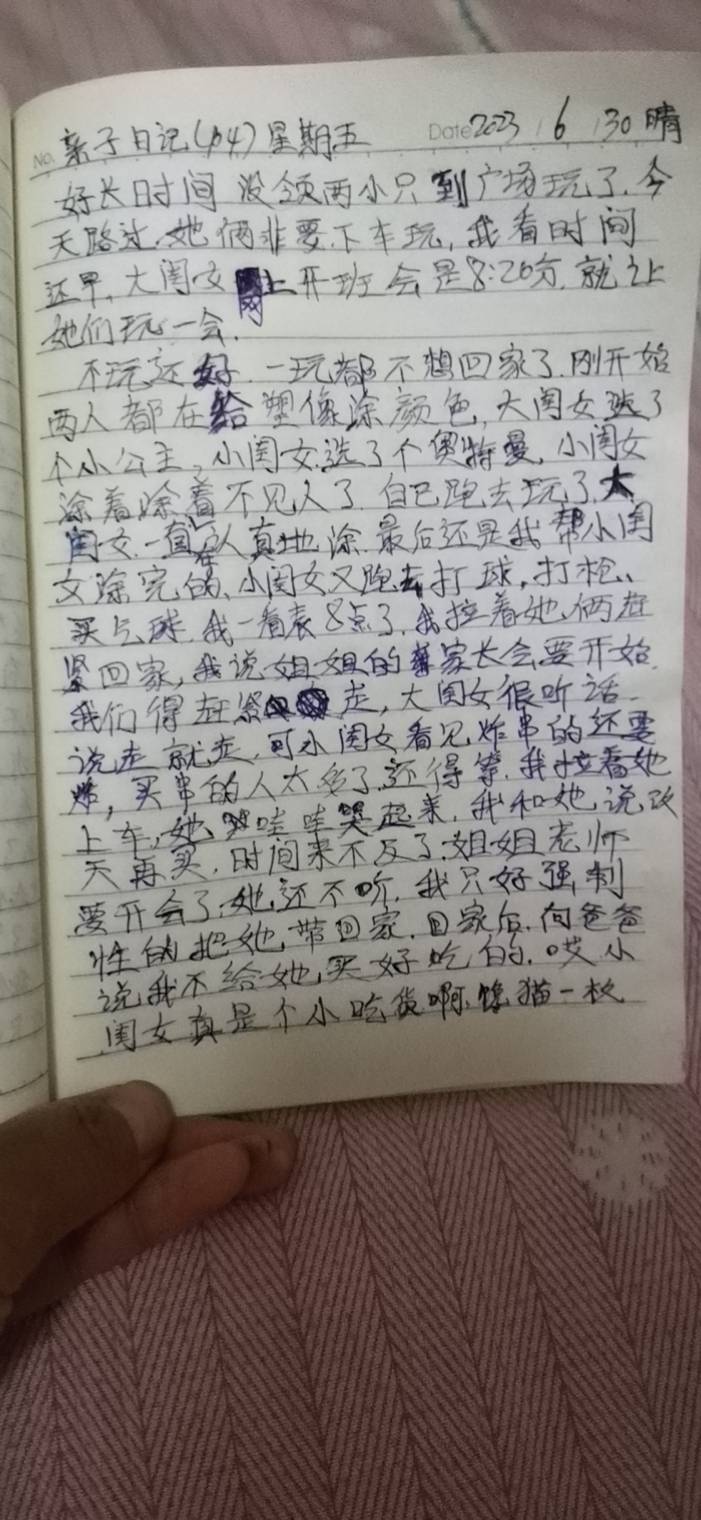 No. 亲子日记(104)星期五 Date 2023 / 6 / 30 晴
好长时间没领两小只到广场玩了.今
天路过.她俩非要下车玩,我看时间
还早,大闺女网上开班会是8:20分.就让
她们玩一会.
不玩还好.一玩都不想回家了.刚开始
两人都在给塑像涂颜色,大闺女选了
个小公主,小闺女选了个奥特曼,小闺女
涂着涂着不见人了.自己跑去玩了.大
闺女一直在认真地涂.最后还是我帮小闺
女涂完的、小闺女又跑去打球,打枪、
买气球.我一看表8点了.我拉着她俩赶
紧回家,我说姐姐的家长会要开始.
我们得赶紧走,大闺女很听话.
说走就走,可小闺女看见炸串的还要
炸,买串的人太多了.还得等.我拉着她
上车,她哇哇哭起来.我和她说改
天再买,时间来不及了.姐姐老师
要开会了.她还不听.我只好强制
性的把她带回家.回家后.向爸爸
说我不给她买好吃的.哎小
闺女真是个小吃货啊.馋猫一枚